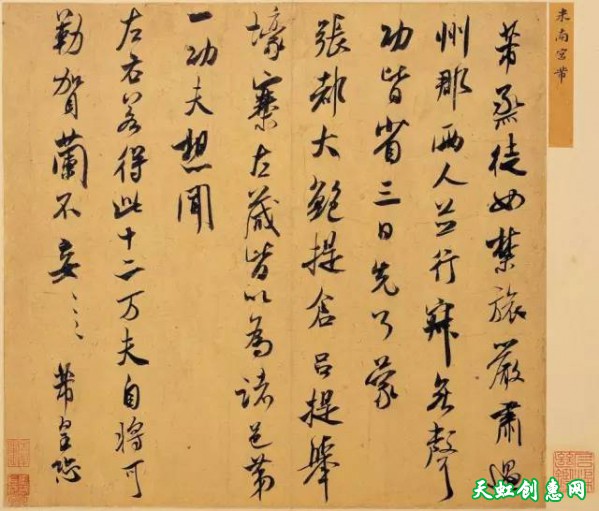 米南宫芾
芾烝徒如禁旅嚴肅過
州郡兩人並行寂無聲
功皆省三日先了蒙
張都大鮑提倉呂提舉
壕寨左藏皆以為諸邑第
一功夫想聞
左右若得此十二万夫自將可
勒賀蘭不妄々々芾皇恐
天虹创意网